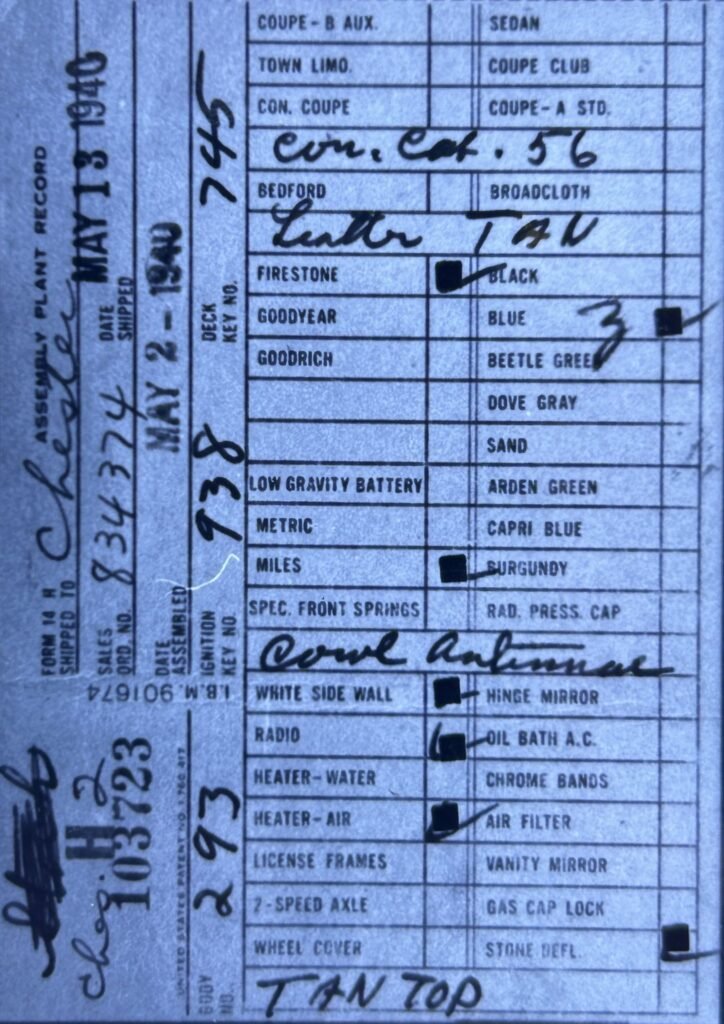 FORM 14 H ASSEMBLY PLANT RECORD
SHIPPED TO Chester
SALES ORD. NO. 834374 DATE SHIPPED MAY 13 1940
DATE ASSEMBLED MAY 2 - 1940
IGNITION KEY NO. 938 DECK KEY NO. 745
I.B.M. 901674
Chag. 2
H
103723
UNITED STATES PATENT NO. 1,780,417
BODY NO. 293
COUPE - B AUX. SEDAN
TOWN LIMO. COUPE CLUB
CON. COUPE COUPE - A STD.
Con. Cab. 56
BEDFORD BROADCLOTH
Leather TAN
FIRESTONE BLACK
GOODYEAR BLUE 3
GOODRICH BEETLE GREEN
DOVE GRAY
SAND
LOW GRAVITY BATTERY ARDEN GREEN
METRIC CAPRI BLUE
MILES BURGUNDY
SPEC. FRONT SPRINGS RAD. PRESS. CAP
Cowl Antennae
WHITE SIDE WALL HINGE MIRROR
RADIO OIL BATH A.C.
HEATER-WATER CHROME BANDS
HEATER-AIR AIR FILTER
LICENSE FRAMES VANITY MIRROR
2-SPEED AXLE GAS CAP LOCK
WHEEL COVER STONE DEFL.
TAN TOP